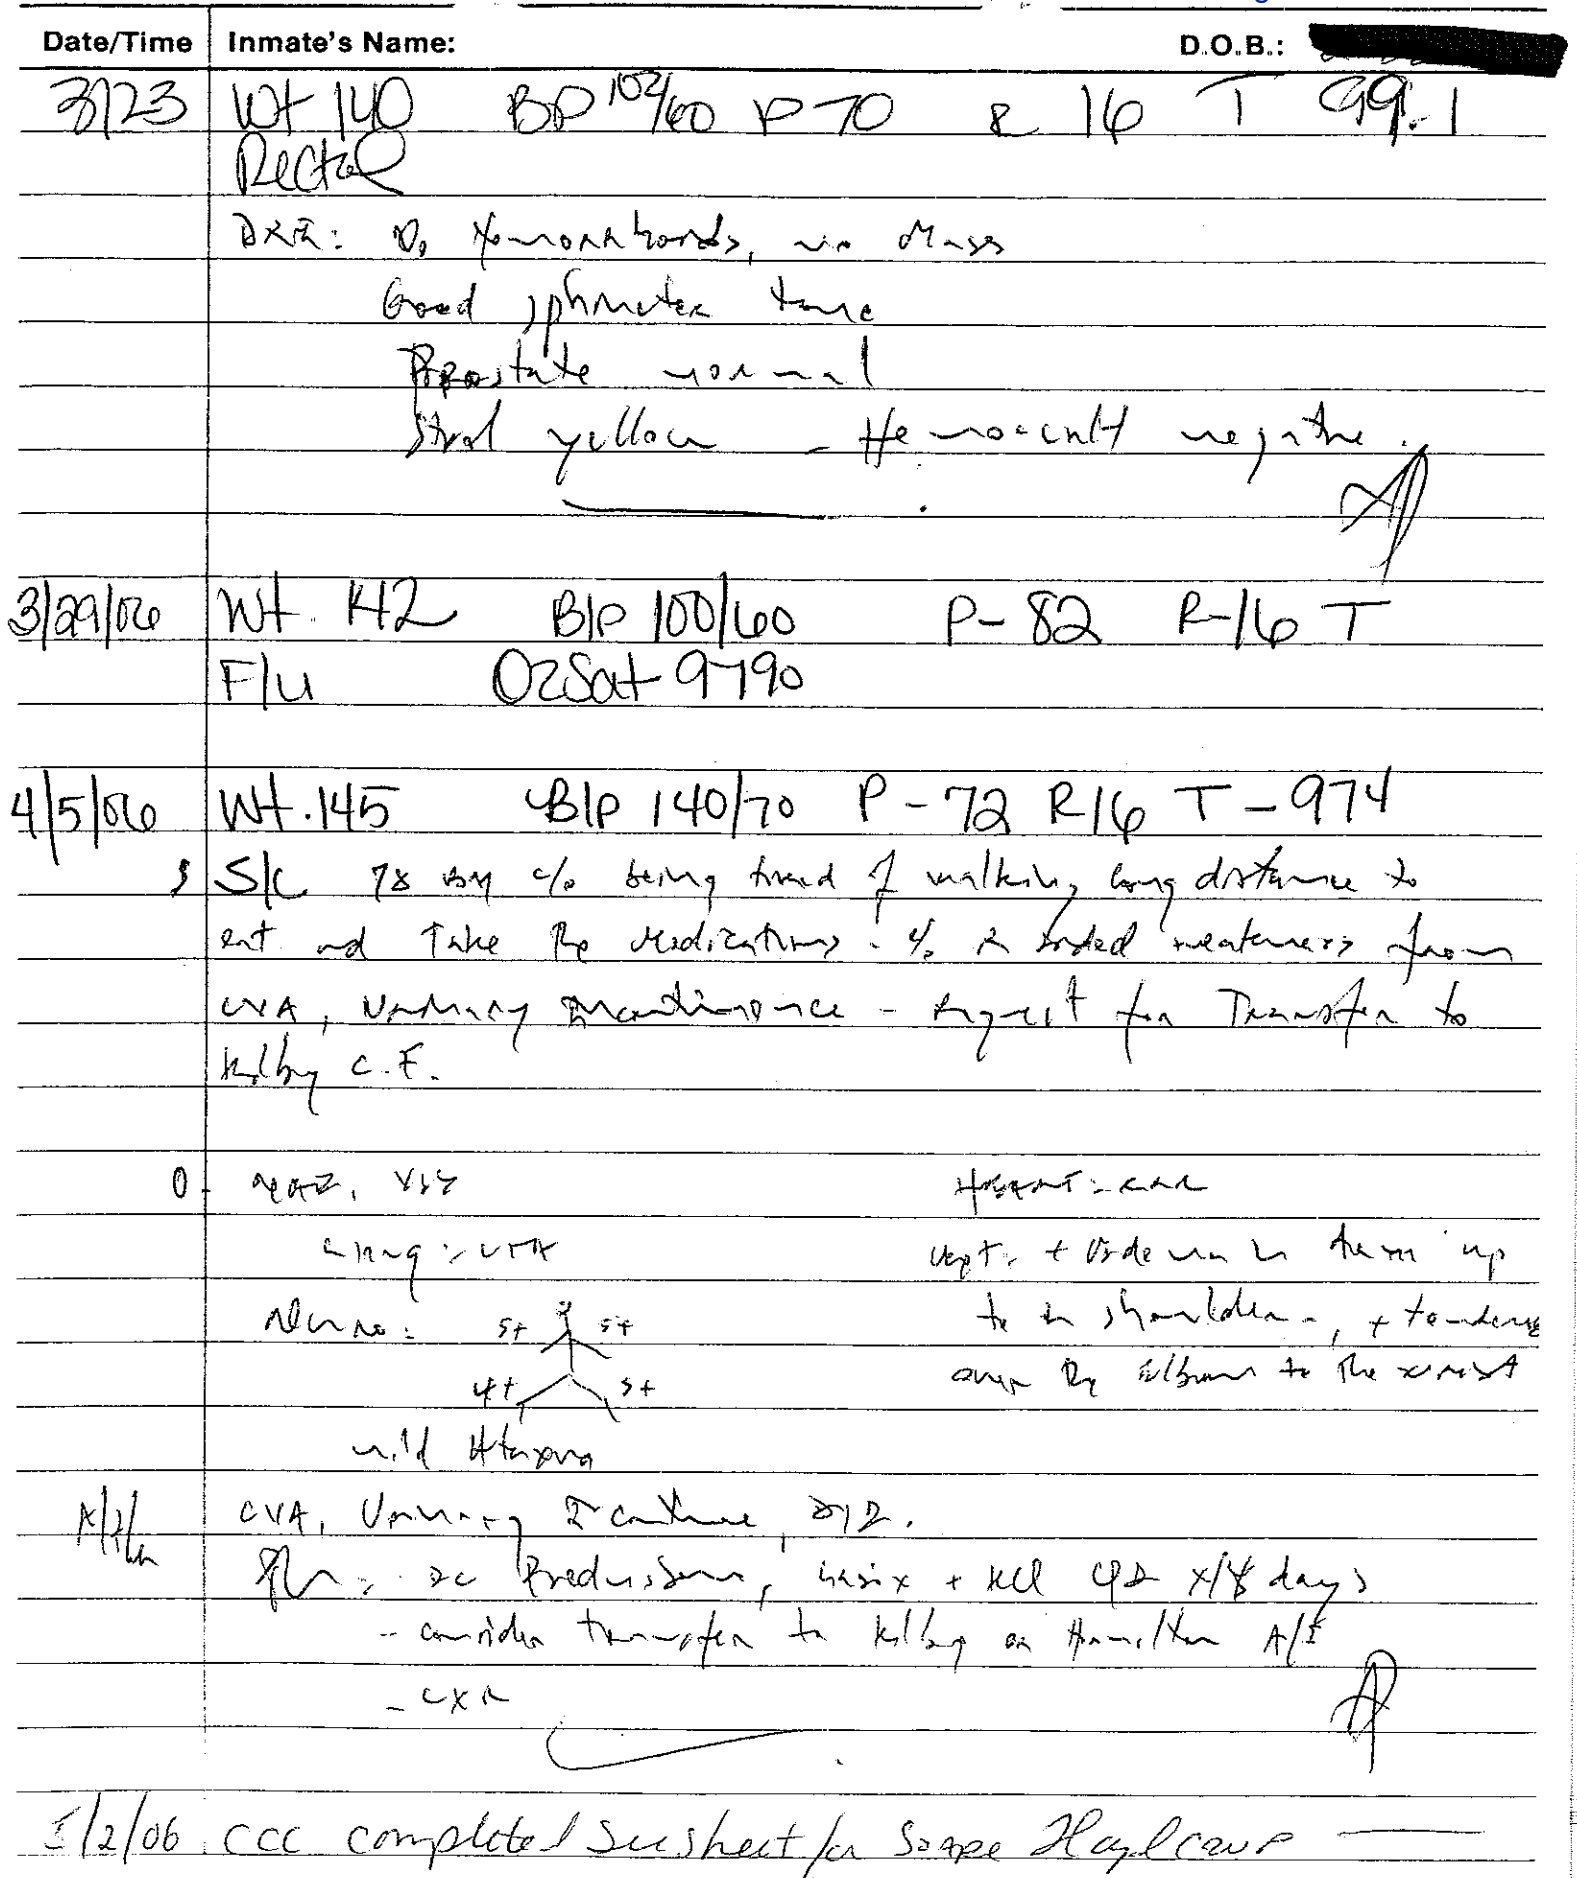 Date/Time Inmate's Name: D.O.B.:
3/23 Wt 140 BP 102/60 P 70 R 16 T 99.1
Rectal
DRE: No Hemorrhoids, no Mass
Good sphincter tone
Prostate normal
Stool yellow - Hemoccult negative.
3/29/06 Wt. 142 B/P 100/60 P- 82 R-16 T
F/u O2Sat 97%
4/5/06 Wt. 145 B/P 140/70 P - 72 R16 T - 974
S S/C 78 BM c/o being tired of walking long distance to
eat and Take the Medications. c/o sided weakness from
CVA, Urinary Incontinence - request for Transfer to
Kilby C.F.
O. Heart: RRR
Lung: CTA + Edema in arm up
Neuro: 5+ 5+ to shoulder, + tenderness
4+ 5+ over the elbow to the wrist
mild Ataxia
CVA, Urinary Incontinence,
Prednisone, Lasix + KCl days
- consider transfer to Kilby or Hamilton A/I
- CXR
5/2/06 CCC completed See sheet for